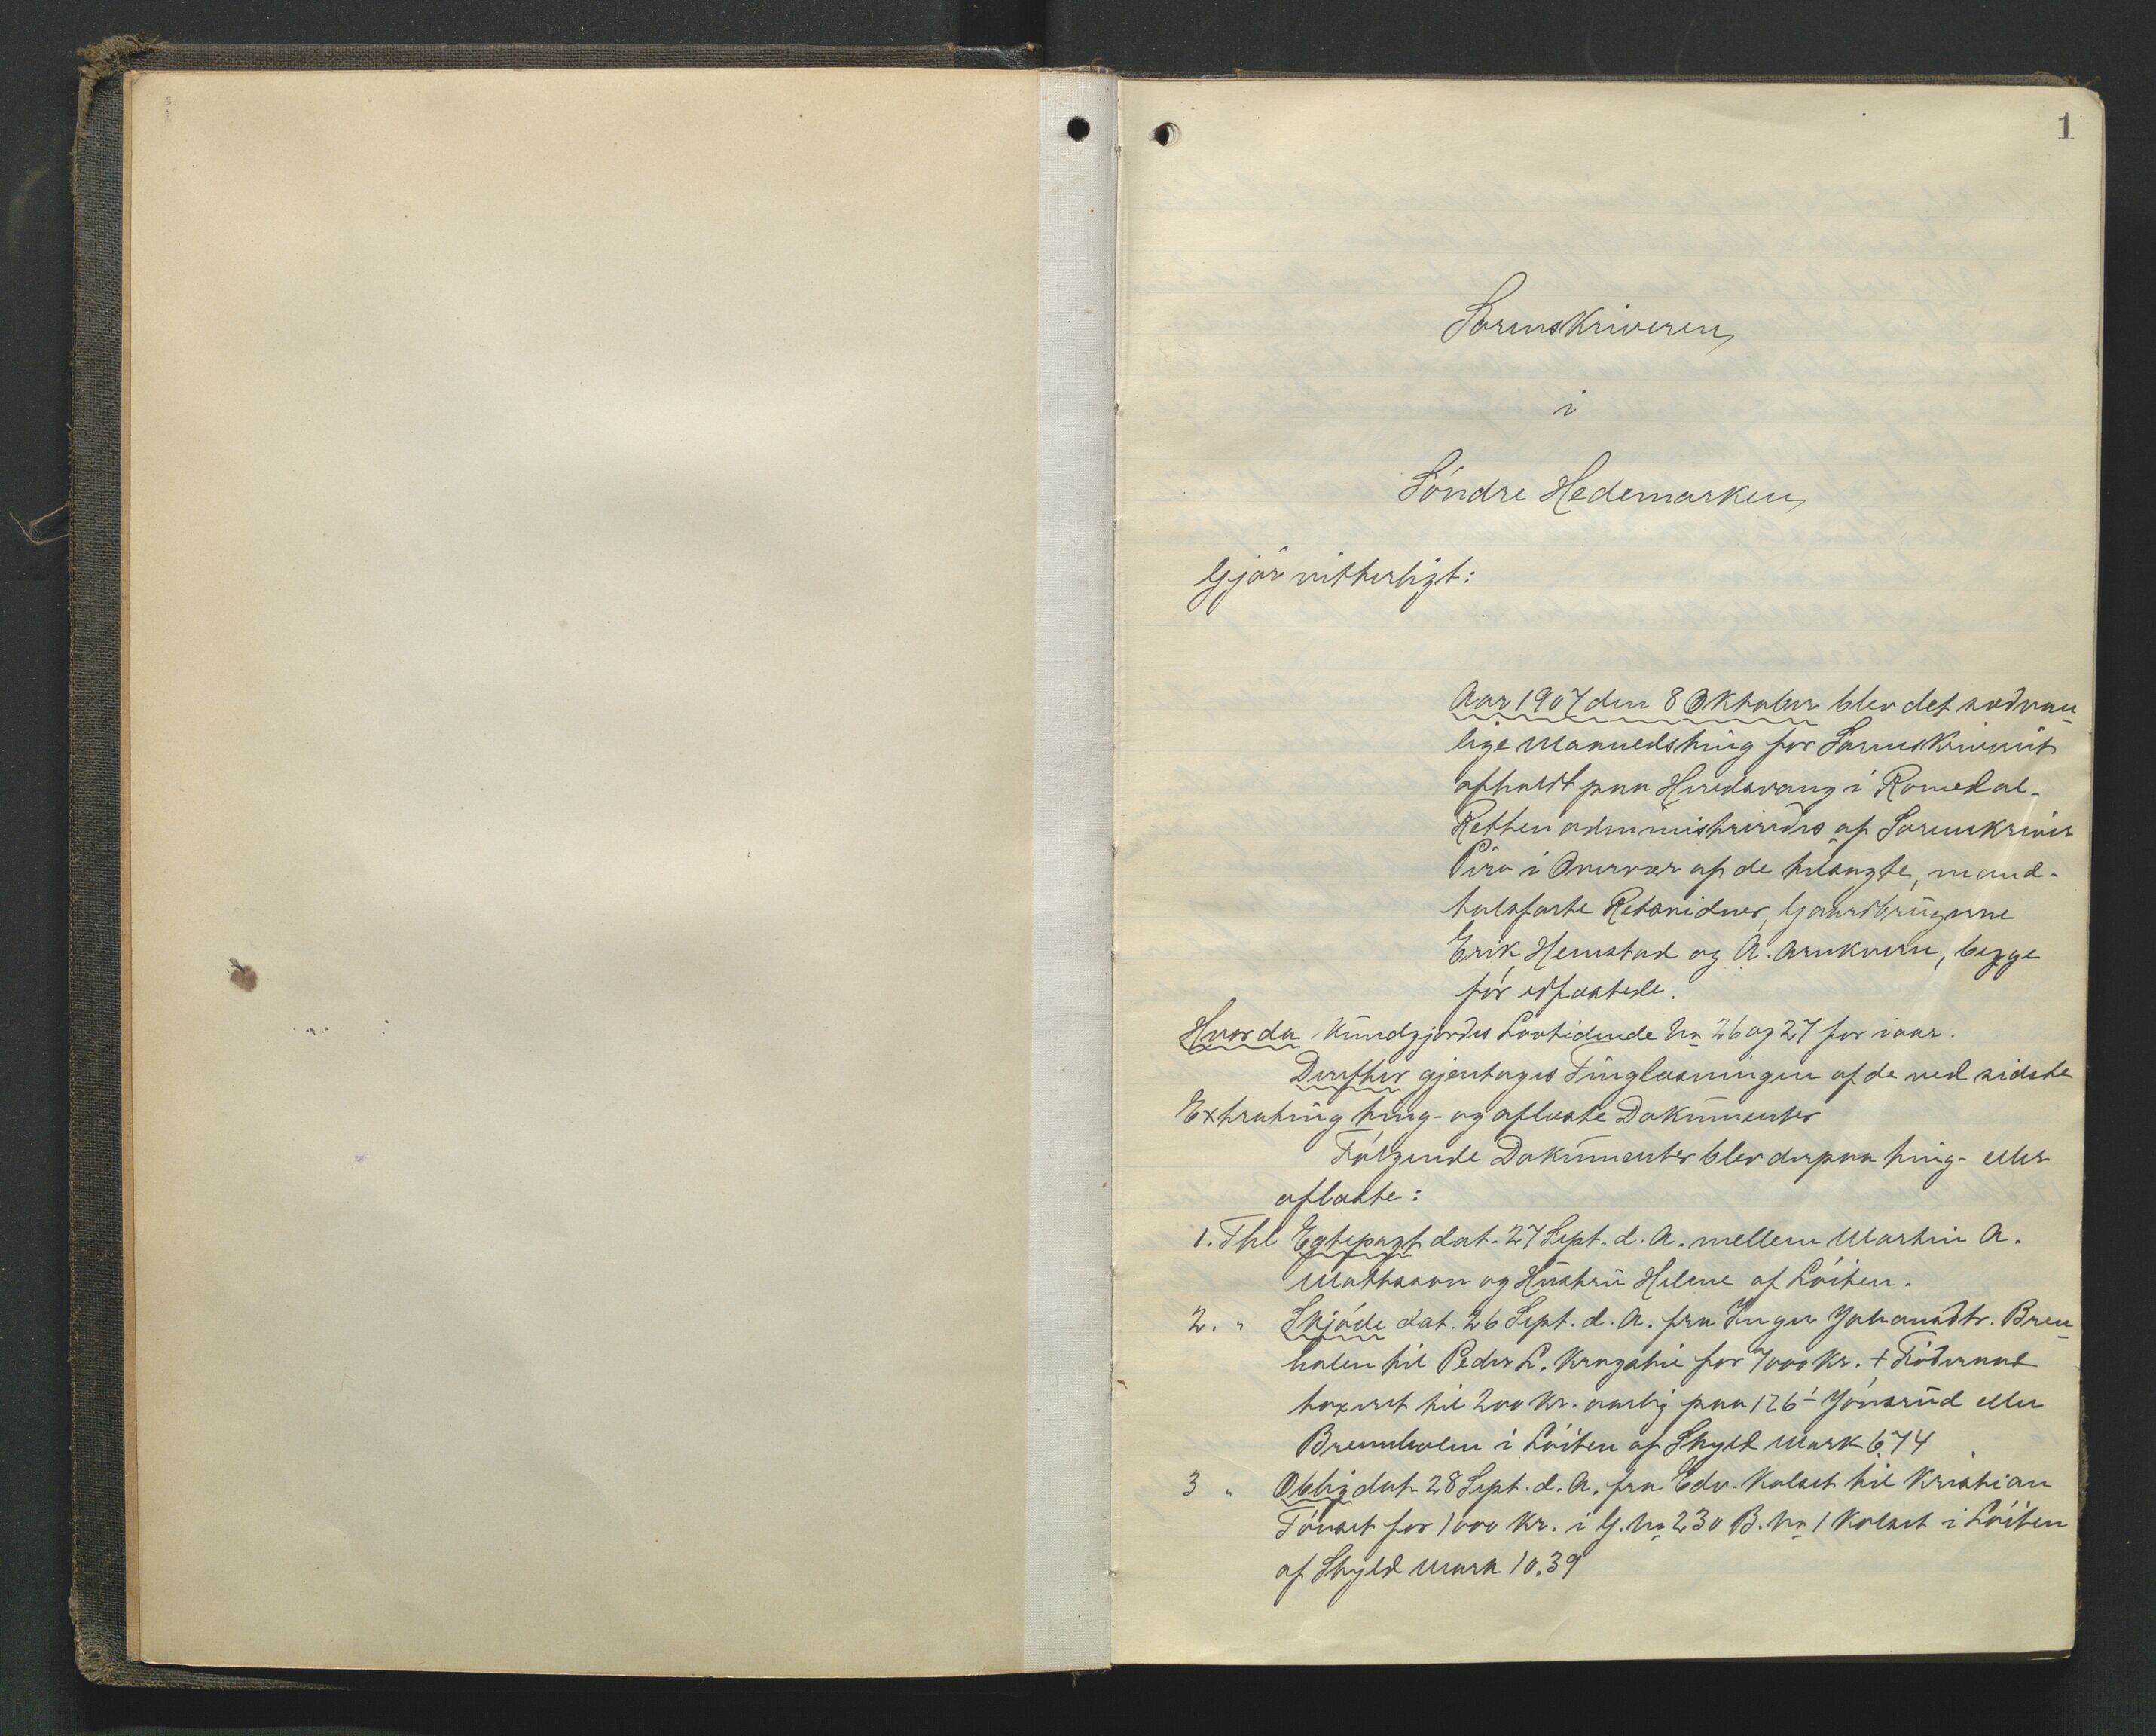 1
Sorenskriveren
i
Söndre Hedemarken
Gjör vitterligt:
Aar 1907 den 8 Oktober blev det sædvan-
lige Maanedsthing for Sorenskriveriet
afholdt paa Hredsvang i Romedal.
Retten administreredes af Sorenskriver
i Overvær af de tilsagte, mand-
talsførte Retsvidner, Gaardbrugerne
Erik Hemstad og A. Arnkvern, begge
för edfæstede.
Hvorda kundgjordes Lovtidende No 26 og 27 for iaar.
Derefter gjentoges Tinglæsningen af de ved sidste
Extrating ting- og aflæste Dokumenter
Fölgende Dokumenter blev derpaa ting- eller
aflæste:
1. Thl Egtepagt dat. 27 Sept. d. A. mellem Martin A.
Mathsson og Hustru Helene af Löiten.
2. " Skjöde dat. 26 Sept. d. A. fra Inger Johansdtr. Bren-
holen til Peder L. Krogstie for 7000 Kr. + Föderaad
taxeret til 200 Kr. aarlig paa 126-1 Jönsrud eller
Brennholen i Löiten af Skyld Mark 6.74
3 " Oblig dat 28 Sept. d. A. fra Edv. Kolset til Kristian
Tönset for 1000 Kr. i G. No 230 B. No 1 Kolset i Löiten
af Skyld Mark 10.39